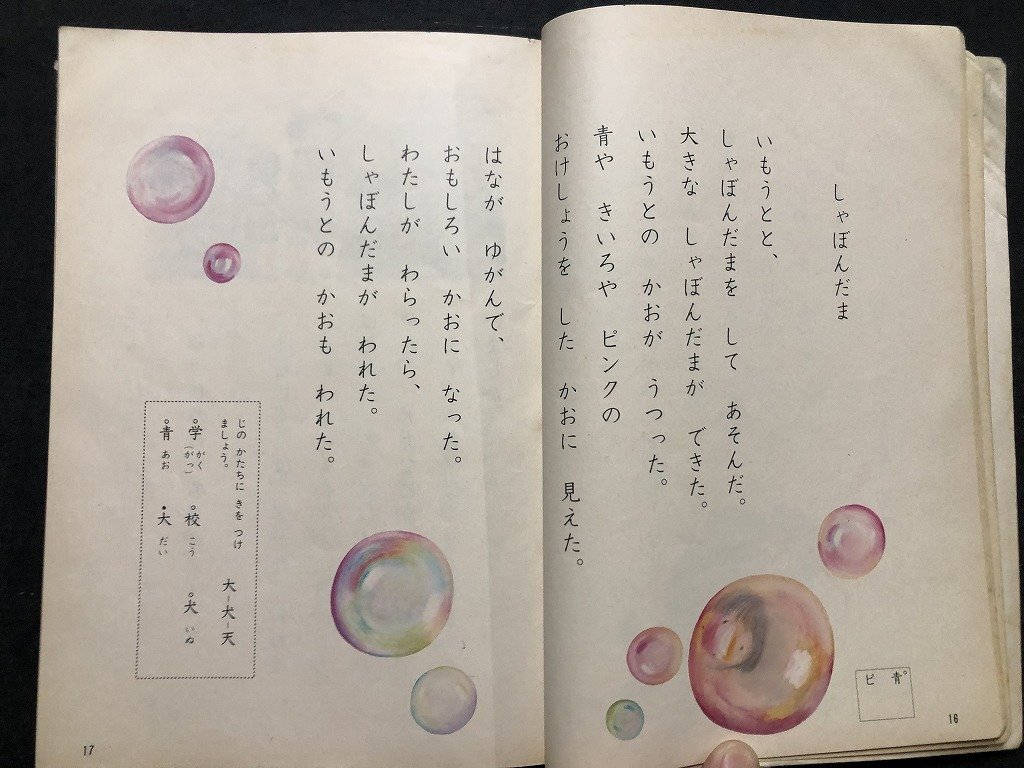 しゃぼんだま
いもうとと、
しゃぼんだまを して あそんだ。
大きな しゃぼんだまが できた。
いもうとの かおが うつった。
青や きいろや ピンクの
おけしょうを した かおに 見えた。
青 ピ
16
はなが ゆがんで、
おもしろい かおに なった。
わたしが わらったら、
しゃぼんだまが われた。
いもうとの かおも われた。
じの かたちに きを つけ
ましょう。
大-犬-天
学 がく (がっ) 校 こう 犬 いぬ
青 あお 大 だい
17